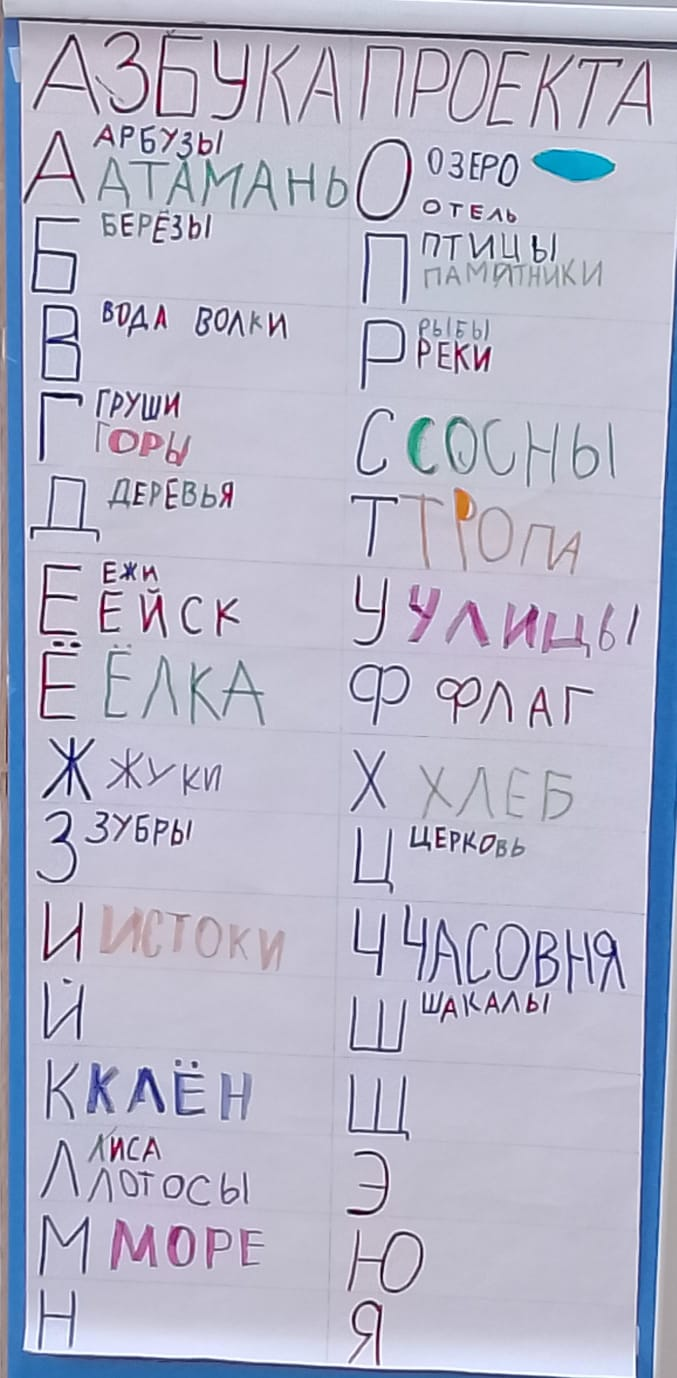 АЗБУКА ПРОЕКТА
А АРБУЗЫ
АТАМАНЬ
Б БЕРЁЗЫ
В ВОДА ВОЛКИ
Г ГРУШИ
ГОРЫ
Д ДЕРЕВЬЯ
Е ЕЖИ
ЕЙСК
Ё ЁЛКА
Ж ЖУКИ
З ЗУБРЫ
И ИСТОКИ
Й
К КЛЁН
Л ЛИСА
ЛОТОСЫ
М МОРЕ
Н
О ОЗЕРО
ОТЕЛЬ
П ПТИЦЫ
ПАМЯТНИКИ
Р РЫБЫ
РЕКИ
С СОСНЫ
Т ТРОПА
У УЛИЦЫ
Ф ФЛАГ
Х ХЛЕБ
Ц ЦЕРКОВЬ
Ч ЧАСОВНЯ
Ш ШАКАЛЫ
Щ
Э
Ю
Я